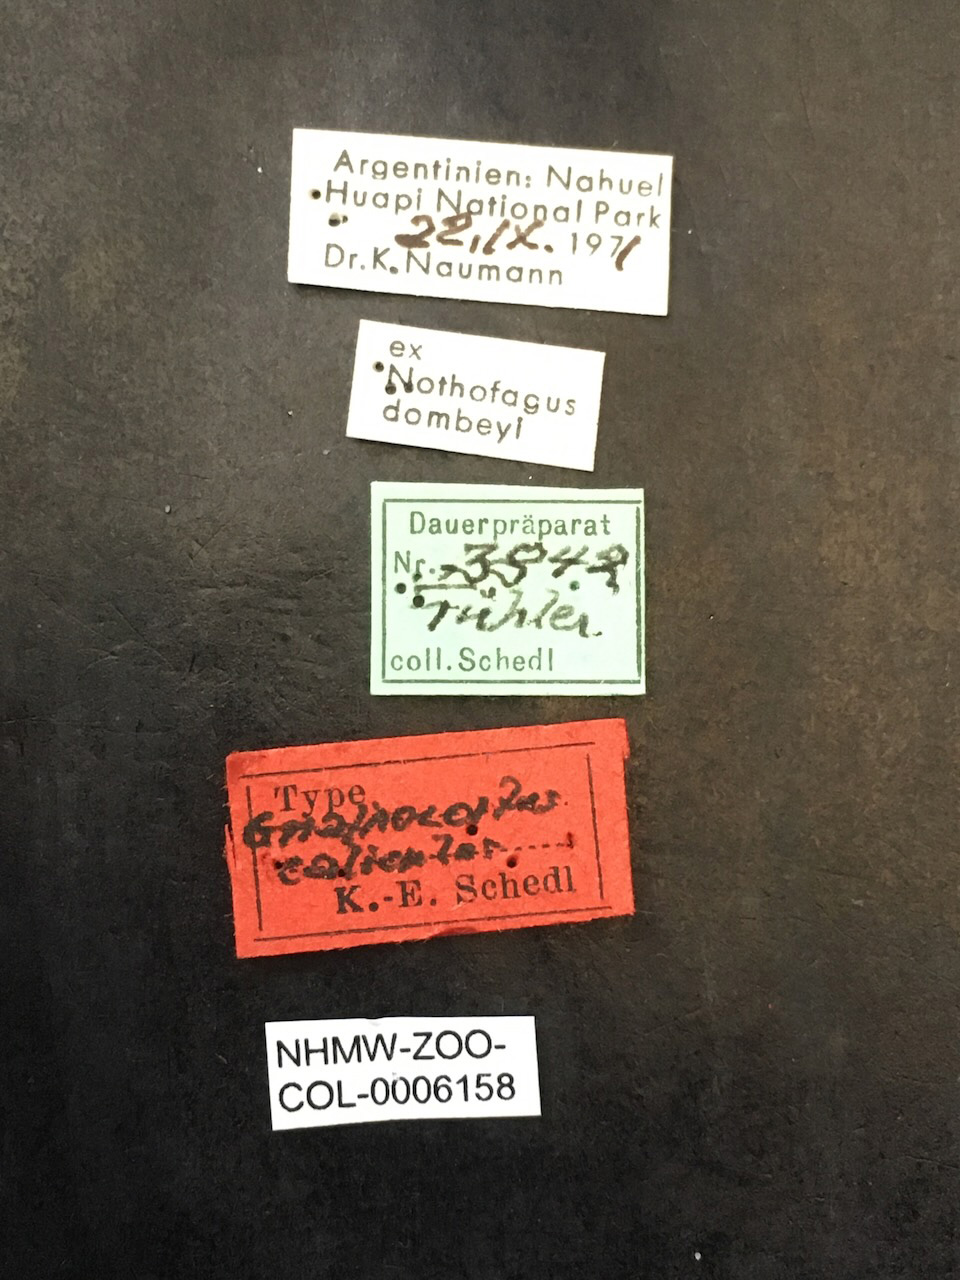 Argentinien: Nahuel
Huapi National Park
22.IX. 1971
Dr.K.Naumann
ex
Nothofagus
dombeyi
Dauerpräparat
Nr. 3942
Fühler
coll.Schedl
Type
Gnathocortus
caliculus
K.-E. Schedl
NHMW-ZOO-
COL-0006158